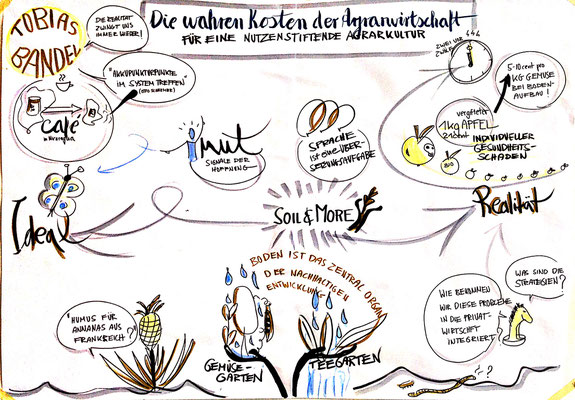 TOBIAS
BANDEL
DIE REALITÄT
ZWINGT UNS
IMMER WIEDER!
Die wahren Kosten der Agrarwirtschaft
FÜR EINE NUTZENSTIFTENDE AGRARKULTUR
"AKKUPUNKTURPUNKTE
IM SYSTEM TREFFEN"
(OTTO SCHARMER)
Café
in Nicaragua
mut
SIGNALE DER
HOFFNUNG
SPRACHE
ist eine ÜBER-
SETZUNGSAUFGABE
ZWEI VOR
5-10 cent pro
KG GEMÜSE
BEI BODEN-
AUFBAU!
vergifteter
1kg APFEL
INDIVIDUELLER
GESUNDHEITS-
SCHADEN
Ideal
SOIL & MORE
Realität
BODEN IST DAS ZENTRAL ORGAN
DER NACHHALTIGEN
ENTWICKLUNG
"HUMUS FÜR
ANNANAS AUS
FRANKREICH?"
GEMÜSE-
GARTEN
TEEGARTEN
WIE BEKOMMEN
WIR DIESE PROBLEME
IN DIE PRIVAT-
WIRTSCHFT
INTEGRIERT
WAS SIND DIE
STRATEGIEN?
?